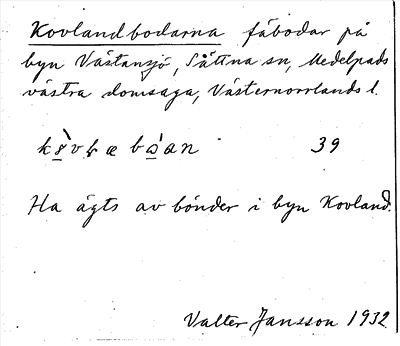 Kovlandbodarna fäbodar på
byn Västansjö, Sättna sn, Medelpads
västra domsaga, Västernorrlands l.
39
Ha ägts av bönder i byn Kovland.
Valter Jansson 1932